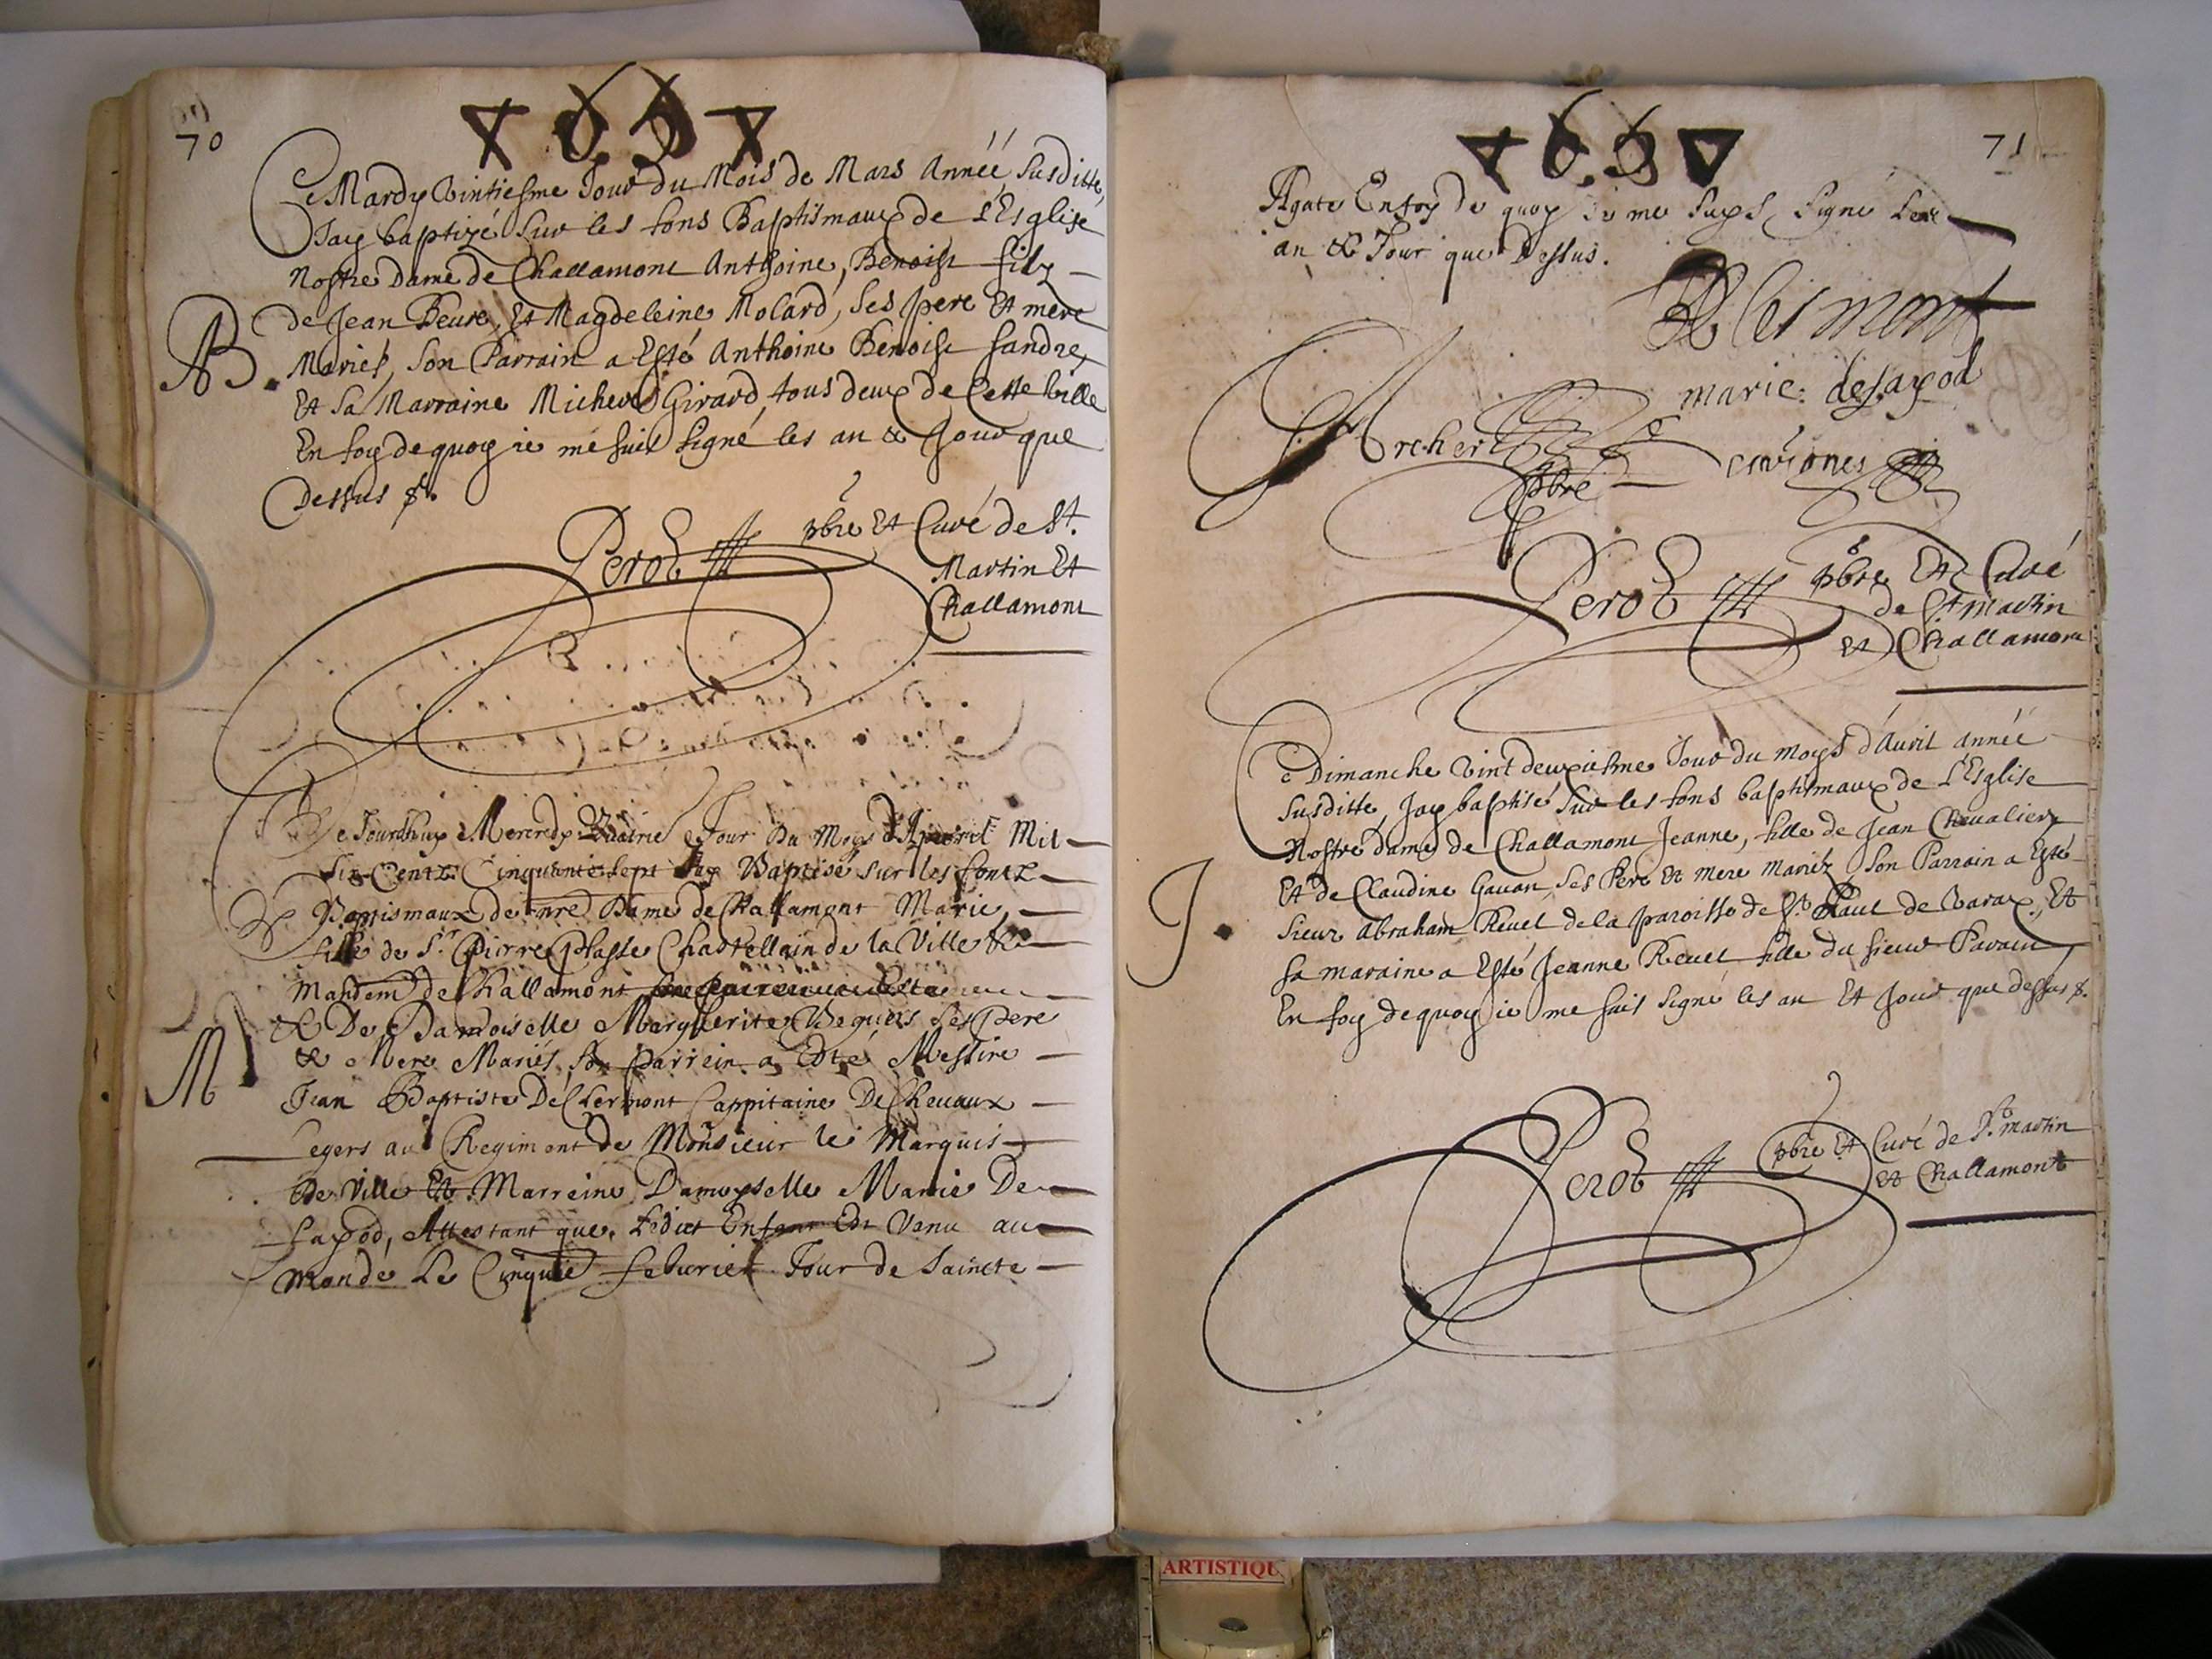 70
1657
Ce Mardy vintiesme Jour du Mois de Mars Année Susditte,
Jay baptizé Sur les fons Baptismaux de L'Esglise
Nostre Dame de Challamont Anthoine, Benoist filz
de Jean Beure, Et Magdeleine Molard, Ses pere Et mere
AB.
Mariés, Son Parrain a Esté Anthoine Benoist Sandre,
Et Sa Marraine Michere Girard, tous deux de Cette ville
En foy de quoy ie me suis signé les an & Jour que
Dessus &.
Perod pbre Et Curé de St.
Martin Et
Challamont
Ce Jourdhuy Mecredy Jour Du Moys D'Apvril Mil
Six Centz Cinquante sept Jay Baptisé sur les fontz
Baptismaux de nre Dame de Challamont Marie,
fille de Sr. Pierre Chastellain de la Ville &
Mandemt de Challamont
& De Damoiselle Marguerite Ses pere
M
& Mere Mariés, Son parrein a Esté Messire
Jean Baptiste De Clermont Cappitaine De Chevaux
Legers au Regiment de Monsieur le Marquis
De Ville Et Marreine Damoyselle Marie De
Sapod, Attestant que Ledict Enfant Est Venu au
Monde Le Cinquie febvrier Jour de Saincte
1657
71
Agate En foy de quoy Je me suys Signé Les
an & Jour que Dessus.
Clermont
marie desapod
Archer
pbre
Perod pbre Et Curé
de St martin
et Challamont
Ce Dimanche vint deuxiesme Jour du moys d'Auril année
susditte, Jay baptisé Sur les fons baptismaux de L'Esglise
Nostre dame de Challamont Jeanne, fille de Jean Cheualier
Et de Claudine Gauan, Ses Pere Et mere Mariéz, Son Parrain a Esté
J.
Sieur Abraham Reuel de la paroisse de St. Paul de Varax, Et
sa maraine a Esté Jeanne Reuel fille du sieur Parain,
En foy de quoy ie me suis signé les an Et Jour que dessus &.
Perod pbre Et Curé de St. martin
et Challamont
ARTISTIQU